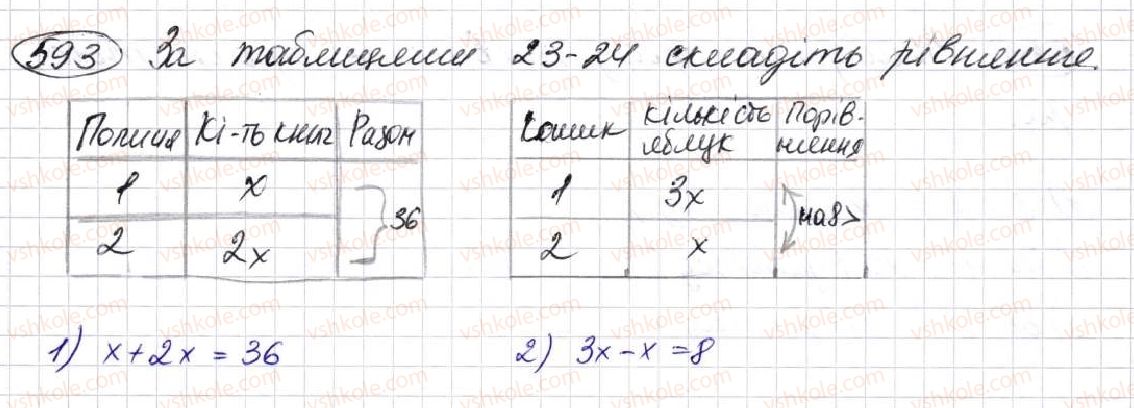 593 За таблицями 23-24 складіть рівняння.
Полиця Кі-ть книг Разом
1 x
2 2x
36
Кошик Кількість яблук Порів-няння
1 3x
2 x
на 8 >
1) x + 2x = 36
2) 3x - x = 8